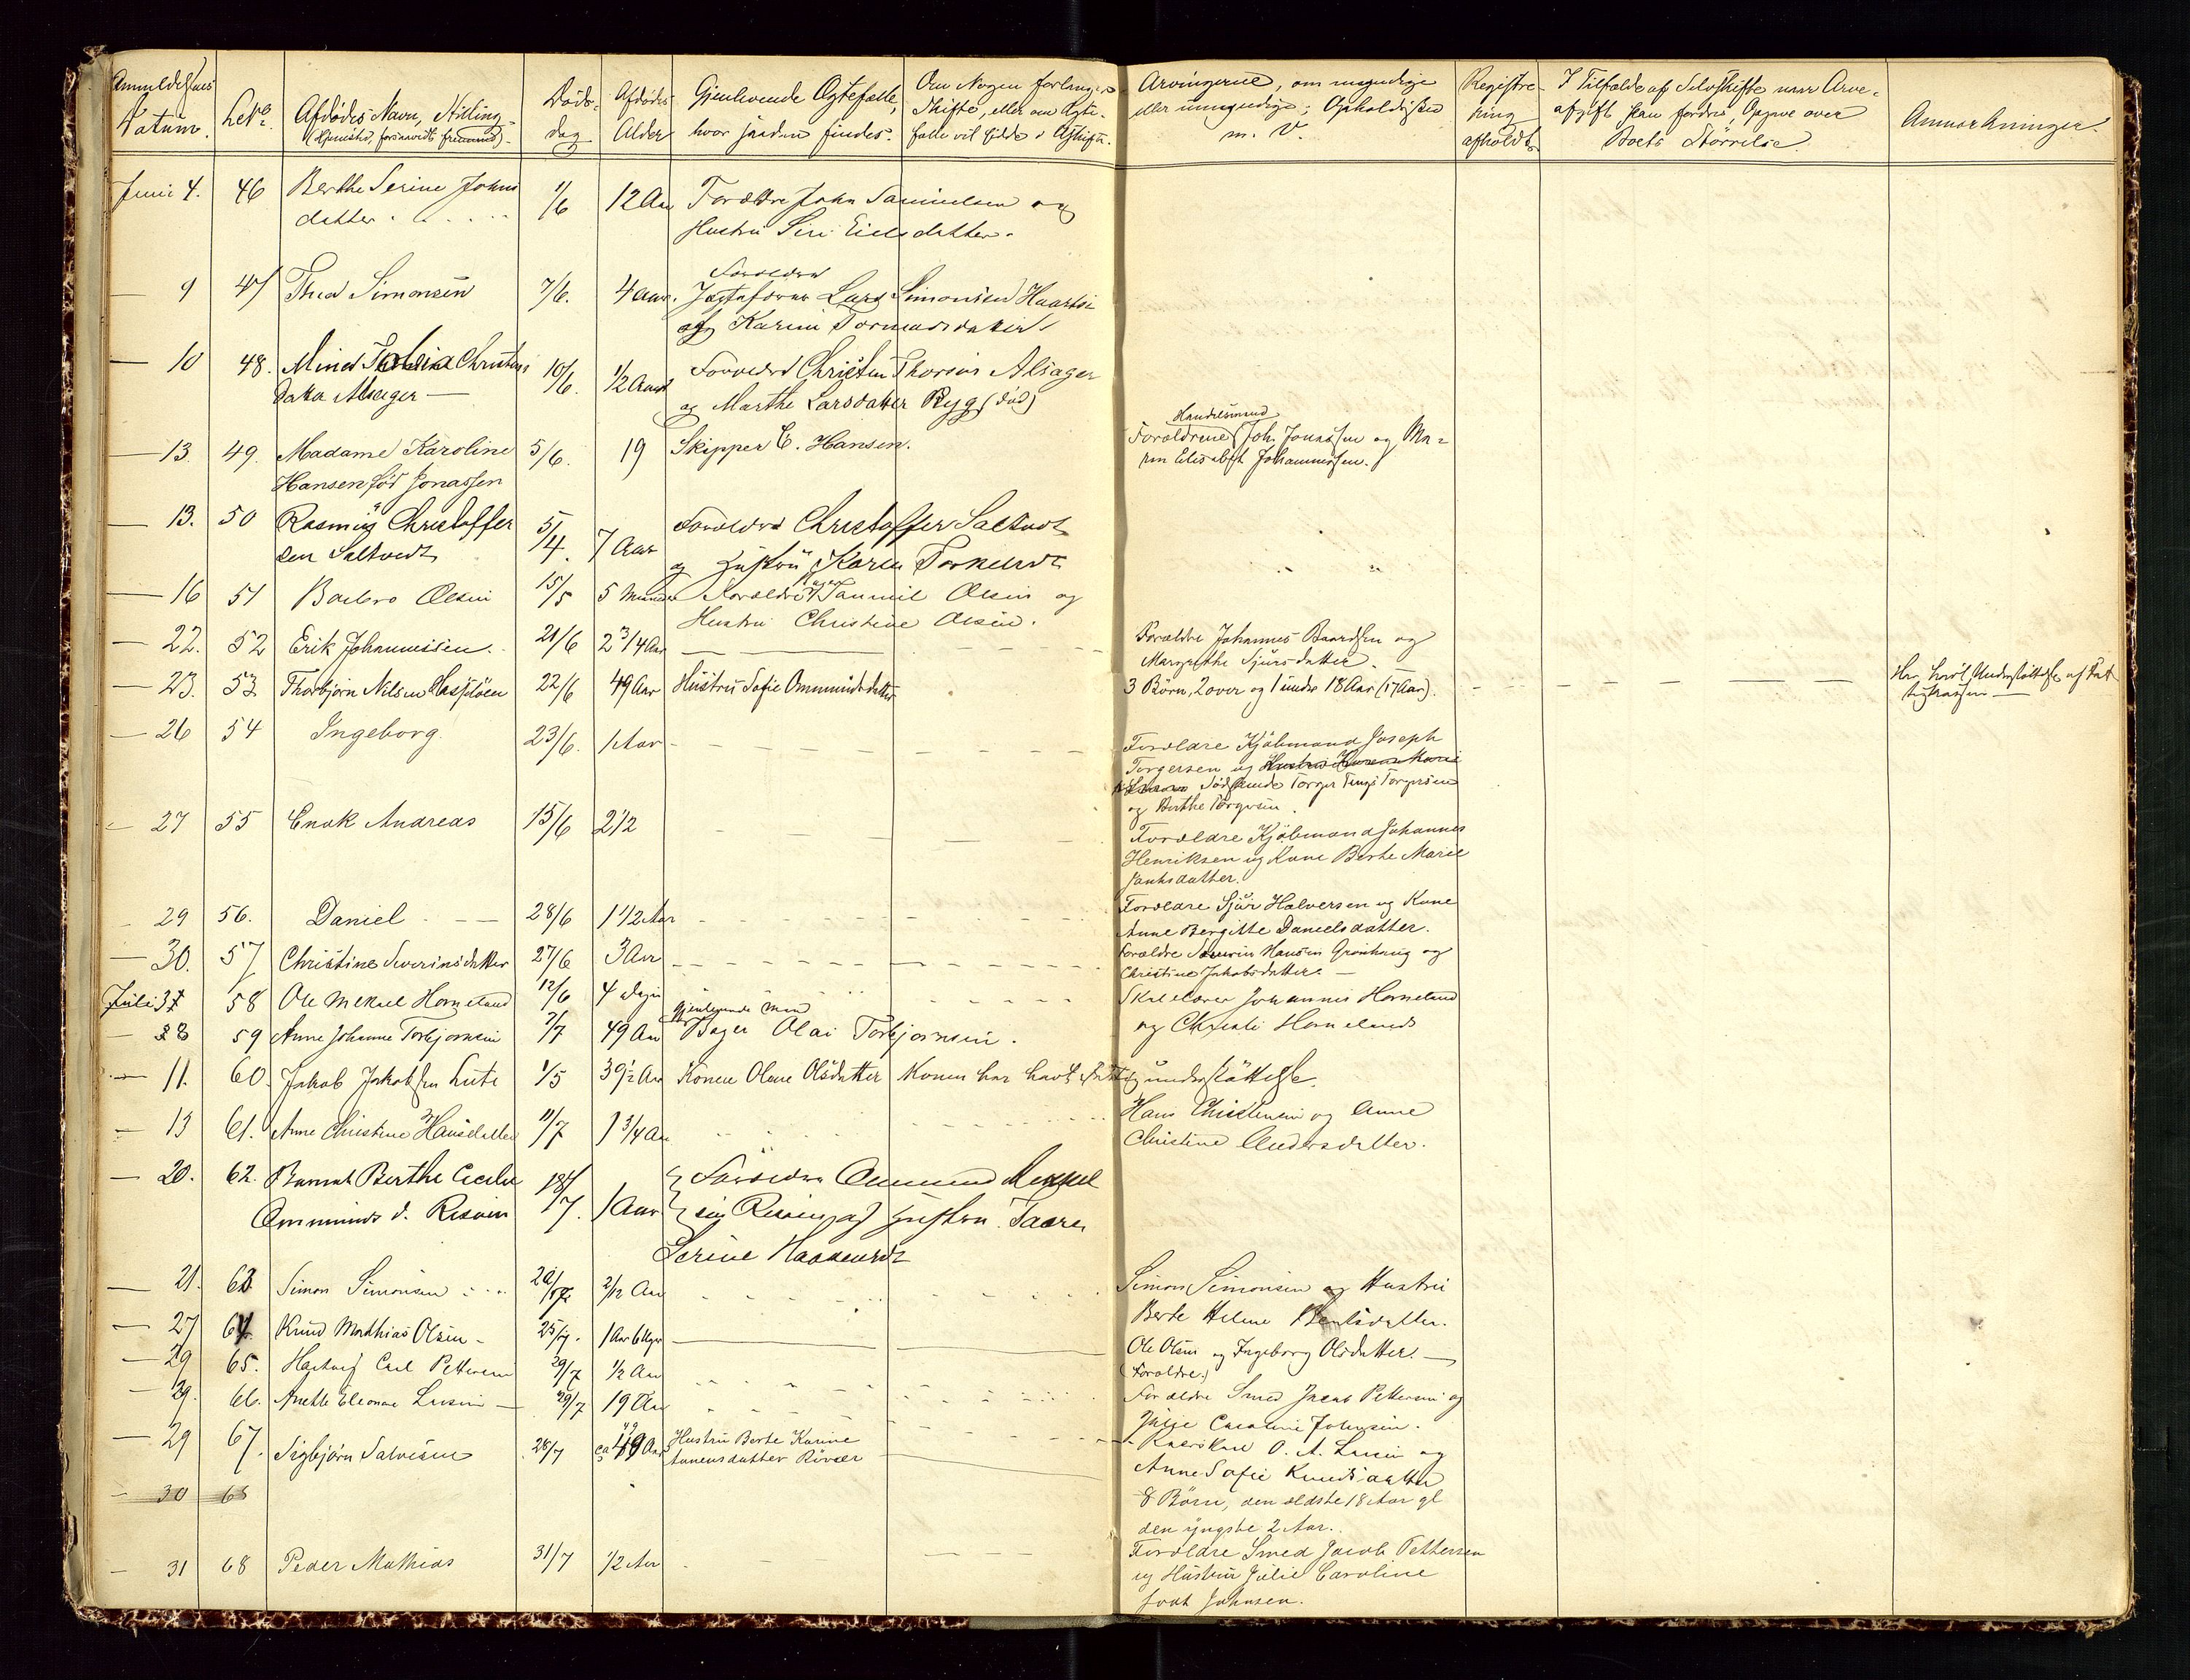 Anmeldelsens Datum. LNo. Afdødes Navn, Stilling (Hjemsted, forsaavidt fremmed). Døds-dag Afdødes Alder Gjenlevende Ægtefælle, hvor saadan findes. Om Nogen forlanger Skifte, eller om Ægte-fælle vil sidde i Uskifte. Arvingerne, om myndige eller umyndige; Opholdssted m. V. Registre-ring afholdt I Tilfælde af Selvskifte naar Arve-afgift skan fordres, Opgave over Boets Størrelse. Anmærkninger.
Juni 4. 46 Berthe Serine Johns 1/6 12 Aar Forældre John Samuelsen og
datter Hustru Siri Eielsdatter.
— 9 47 Thea Simonsen 7/6. 4 Aar. Forældre
Jægtefører Lars Simonsen
og Karine
— 10 48. Christens 10/6. 1/2 Aar Forældre Christen Thorsen Alsager
Datter Alsager — og Marthe Larsdatter Ryg (død)
— 13. 49. Madame Karoline 5/6. 19 Skipper C. Hansen. Handelsmand
Forældrene Joh. Jonassen og Ma-
Hansen fød Jonassen ren Elisabeth Johannessen.
— 13. 50 Rasmus Christoffer 5/4. 7 Aar Forældre Christoffer Saltvedt
sen Saltvedt og Hustru Karen
— 16 51 Barbro Olsen 15/5 5 Maaneder Forældre Samuel Olsen og
Hustru Christine Olsen.
— 22. 52 Erik Johannesen. 21/6 2 3/4 Aar — Forældre Johannes Baardsen og
Margrethe Sjursdatter. —
— 23. 53 Thorbjørn Nilsen 22/6 49 Aar Hustru Sofie Ommundsdatter 3 Børn, 2 over og 1 under 18 Aar (17 Aar). Har havt Understøttelse af Fat
tigkassen —
— 26 54 Ingeborg. 23/6. 1 Aar Forældre Kjøbmand Joseph
Torgersen og Hustru Karen Marie
Torger Torgersen
og Berthe Torgersen.
— 27 55 Enok Andreas 15/6 2 1/2 Forældre Kjøbmand Johannes
Henriksen og Kone Berte Marie
— 29 56. Daniel 28/6 1 1/2 Aar Forældre Sjur Halversen og Kone
Anne Bergitte Danielsdatter.
— 30. 57 Christine Severinsdatter 27/6 3 Aar Forældre Severin Hansen Grønhaug og
Christine Jakobsdatter. —
Juli 3 58 Ole Mekael Horneland 12/6 4 Dage Johannes Horneland
og Christi Hornelands
— 8 59 Anne Johanne Torbjørnsen 7/7 49 Aar Gjenlevende Mand
Bager Olai Torbjørnsen.
— 11. 60. Jakob Jakobsen Lute 1/5 39 1/2 Aar Konen Olene Olsdatter Konen har havt Fattigunderstøttelse.
— 13 61. Anne Christine Hansdatter 11/7 1 3/4 Aar Hans Christensen og Anne
Christine Andersdatter.
— 20. 62. Barnet Berthe Cecilie 18/7. 1 Aar Forældre Ommund
Ommunds d. og Hustru
Serine
— 21. 63 Simon Simonsen 20/7 2/12 Aar Simon Simonsen og Hustru
Berte Helene
— 27 64. Knud Mathias Olsen — 25/7. 1 Aar 6 Uger Ole Olsen og Ingeborg Olsdatter. —
(Forældre.)
— 29 65. Hartvig Carl Pettersen 29/7 1/2 Aar Forældre Smed Jacob Pettersen og
Julie Caroline Johnsen.
— 29. 66. Anette Eleonore — 29/7 19 Aar O. A.
Anne Sofie Knudsdatter
— 29 67. Sigbjørn Salvesen 28/7 ca 49 Aar Hustru Berte Karine
8 Børn, den ældste 18 Aar gl
den yngste 2 Aar.
— 30 68
— 31 68 Peder Mathias 31/7 1/2 Aar Forældre Smed Jacob Pettersen
og Hustru Julie Caroline
født Johnsen.